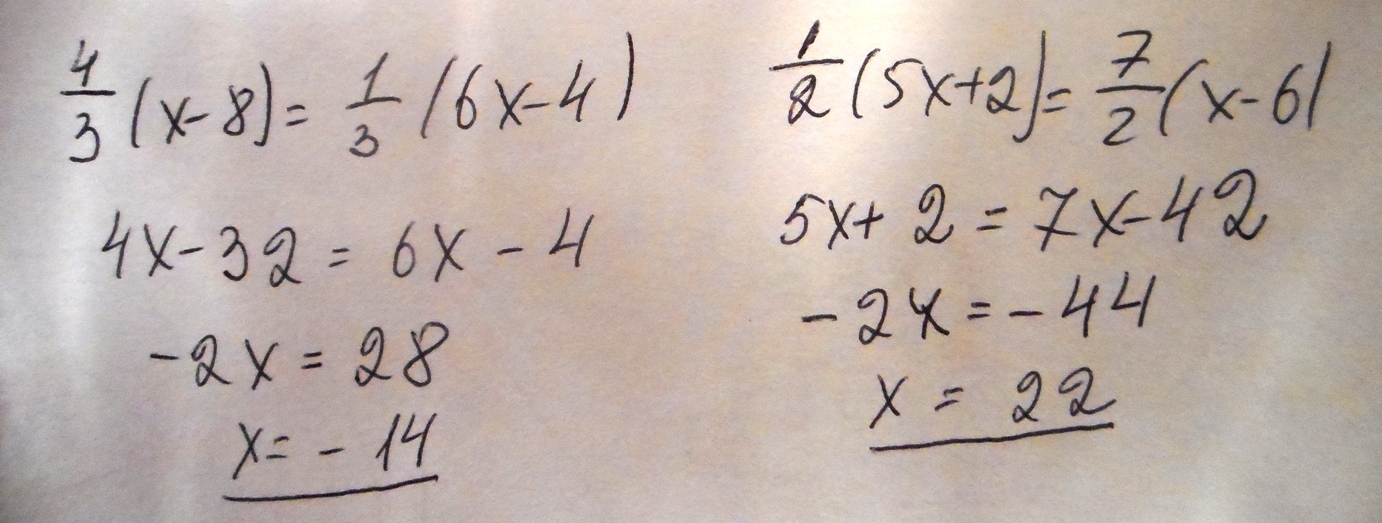 4/3 (x-8) = 1/3 (6x-4)
4x-32 = 6x - 4
-2x = 28
x = - 14
1/2 (5x+2) = 7/2 (x-6)
5x + 2 = 7x-42
-2x = - 44
x = 22